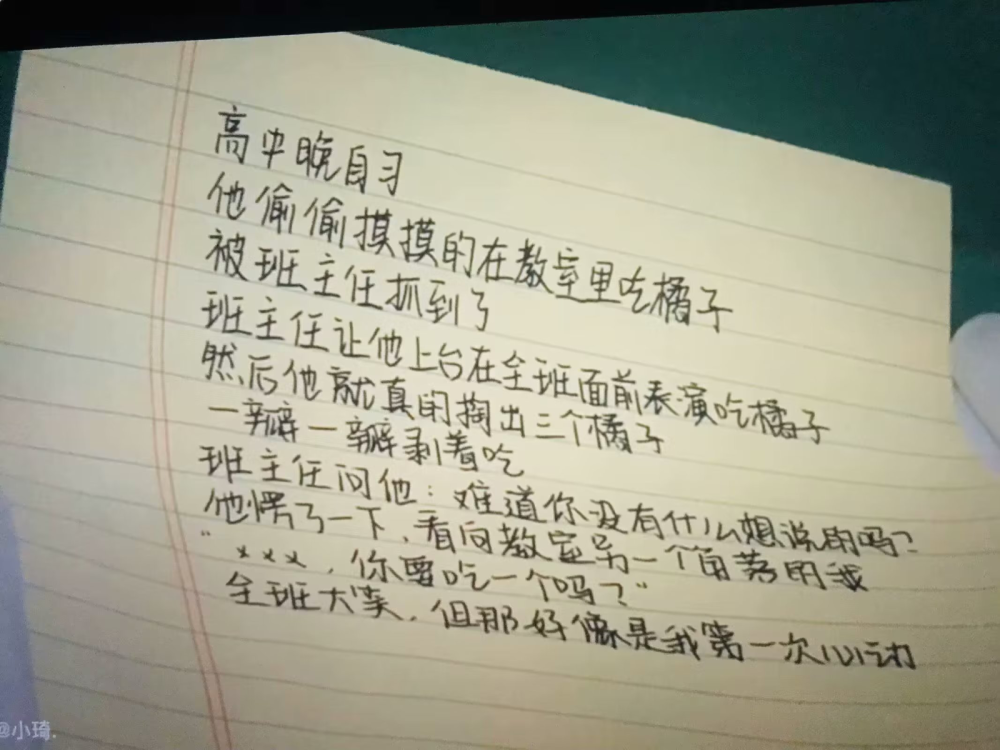 高中晚自习
他偷偷摸摸的在教室里吃橘子
被班主任抓到了
班主任让他上台在全班面前表演吃橘子
然后他就真的掏出三个橘子
一瓣一瓣剥着吃
班主任问他：难道你没有什么想说的吗？
他愣了一下，看向教室另一个角落的我
“×××，你要吃一个吗？”
全班大笑，但那好像是我第一次心动
@小琦.